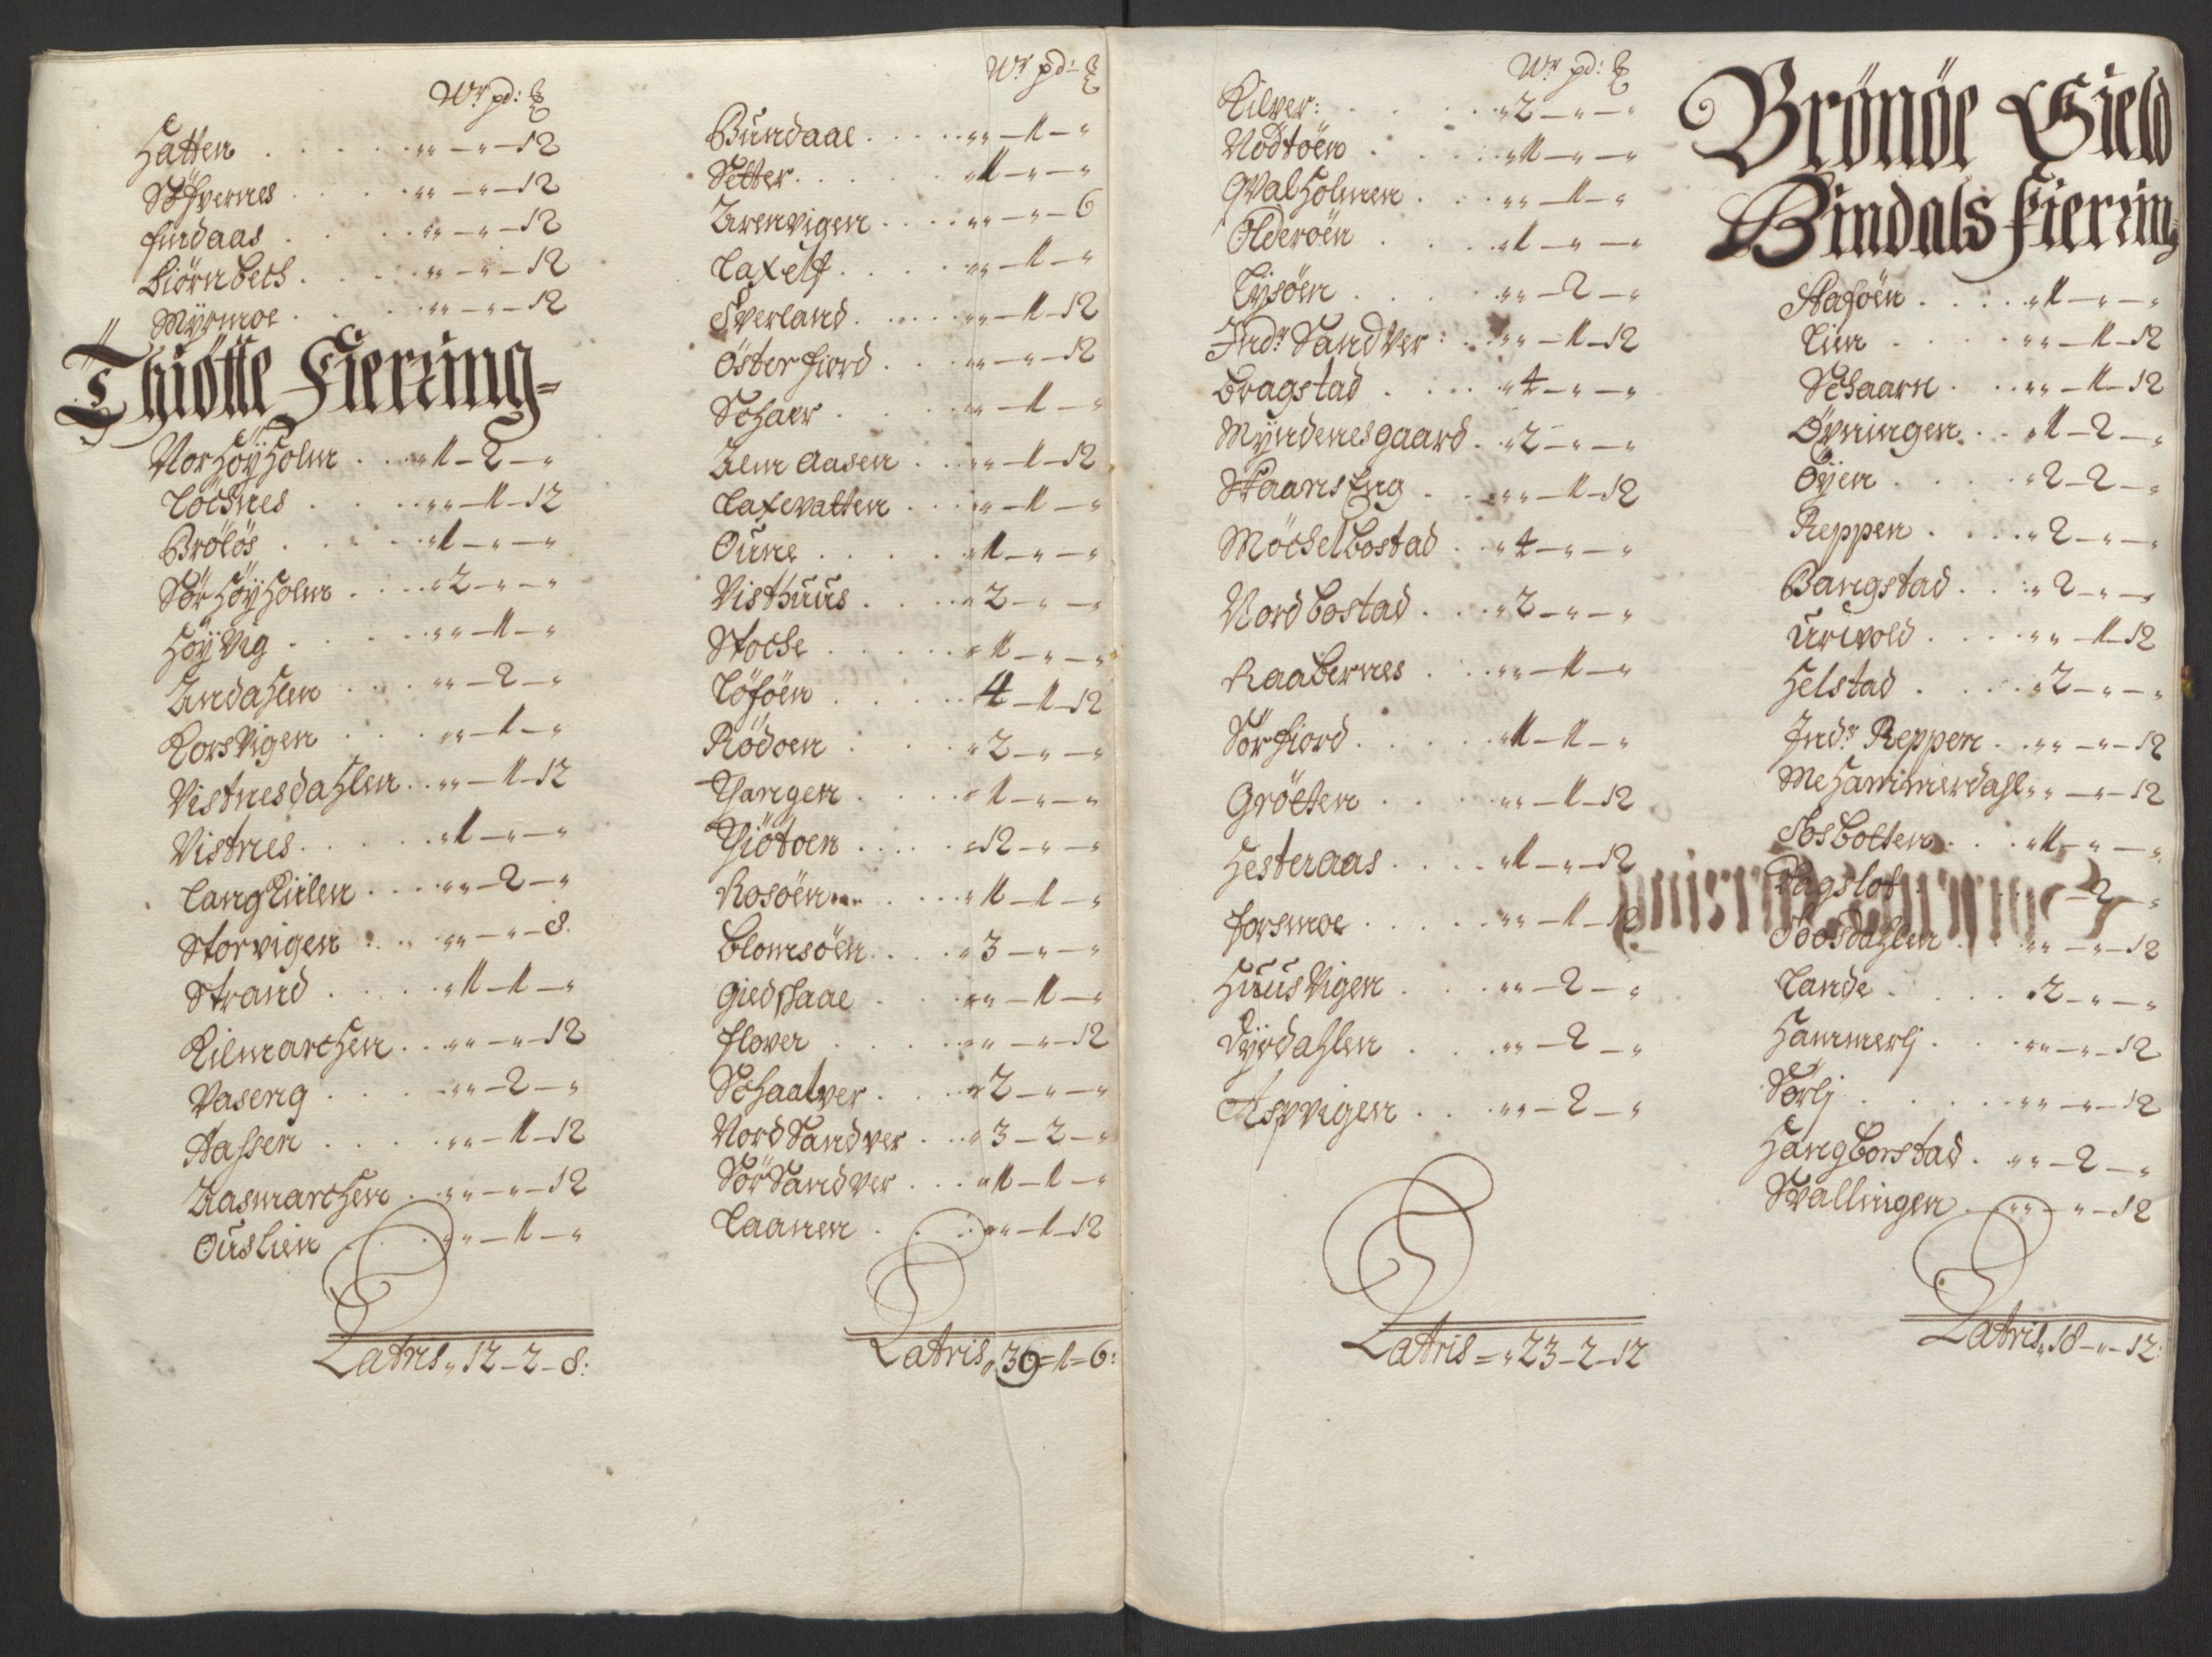 Wr pd: ℔
Hatten . . . . . „„ – „ – 12
Söfvernes . . . . „„ – „ – 12
Findaas . . . . „„ – „ – 12
Biörnbech . . . . „„ – „ – 12
Myrmoe . . . . „„ – „ – 12
Thiötte Fierring =
Nor Höÿholm . . . „1 – 2 – „
Löchnes . . . . „„ – 1 – 12
Brölös . . . . „1 – „ – „
Sör Höÿholm . . . „2 – „ – „
Höÿvig . . . . . „„ – 1 – „
Andahlen . . . . „„ – 2 – „
Korsvigen . . . „„ – 1 – „
Vistnesdahlen . . „„ – 1 – 12
Vistnes . . . . . „1 – „ – „
Langhielen . . . „„ – 2 – „
Storvigen . . . „„ – „ – 8.
Strand . . . . „1 – 1 – „
Kilmarchen . . „„ – „ – 12
Vaseng . . . . „„ – 2 – „
Aassen . . . . „„ – 1 – 12
Aasmarchen . . „„ – „ – 12
Ouslien . . . „„ – 1 – „
Latris „ 12 – 2 – 8:
Wr pd: ℔
Bundaal . . . . . „„ – 1 – „
Setter . . . . . „1 – „ – „
Arenvigen . . . . „„ – „ – 6
Laxelf . . . . . „„ – 1 – „
Sverland . . . . „„ – 1 – 12
Österfiord . . . „„ – „ – 12
Schaer . . . . . „„ – 1 – „
Alm Aasen . . . „„ – 1 – 12
Laxevatten . . . „„ – 1 – „
Oune . . . . . „1 – „ – „
Visthuus . . . . „2 – „ – „
Stoche . . . . . „1 – „ – „
Löföen . . . . . 4 – 1 – 12
Rödoen . . . . „2 – „ – „
Thangen . . . . „1 – „ – „
Thiötoen . . . . „12 – „ – „
Rosöen . . . . „1 – 1 – „
Blomsöen . . . . „3 – „ – „
Giedshaal . . . „„ – 1 – „
Flover . . . . . „„ – „ – 12
Schaalver . . . „2 – „ – „
Nord Sandver . . „3 – 2 – „
Sör Sandver . . . „1 – 1 – „
Laanen . . . . „„ – 1 – 12
Latris „ 36 = 1 = 6:
Wr pd: ℔
Kilver: . . . . „2 – „ – „
Nödtöen . . . . „1 – „ – „
Qvalholmen . . . „„ – 1 – „
Olderöen . . . . „1 – „ – „
Lysöen . . . . . „„ – 2 – „
Indr Sandver: . . „„ – 1 – 12
Bragstad . . . . „4 – „ – „
Myndenesgaard . „2 – „ – „
Skaanseng . . . „„ – 1 – 12
Möchelbostad . . „4 – „ – „
Nordbostad . . . „2 – „ – „
Raabernes . . . „„ – 1 – „
Sörfiord . . . . „1 – 1 – „
Grötten . . . . „„ – 1 – 12
Hesteraas . . . . „1 – „ – 12
Forsmoe . . . . „„ – 1 – 12
Huusvigen . . . „„ – 2 – „
Dyrdahlen . . . „„ – 2 – „
Aspvigen . . . „„ – 2 – „
Latris = „ 23 – 2 – 12
Brönöe Gield
Bindals Fierring
Stafoen . . . . „1 – „ – „
Lim . . . . . „„ – 1 – 12
Schaarn . . . „„ – 1 – 12
Öyningen . . . „1 – 2 – „
Öyen . . . . „2 – 2 – „
Reppen . . . . „2 – „ – „
Bangstad . . . „2 – „ – „
Urivold . . . . „„ – 1 – 12
Helstad . . . . „2 – „ – „
Indr Reppen . . „„ – „ – 12
Mehammerdahl „„ – „ – 12
Fosbotten . . . „1 – „ – „
Vagslot . . . – 2 – „
Soosdahlen . . „„ – „ – 12
Lande . . . . „2 – „ – „
Hammerlj . . . „„ – „ – 12
Sörlj . . . . . „„ – „ – 12
Hangborstad . . „„ – 2 – „
Svallingen . . „„ – „ – 12
Latris „ 18 – „ – 12: